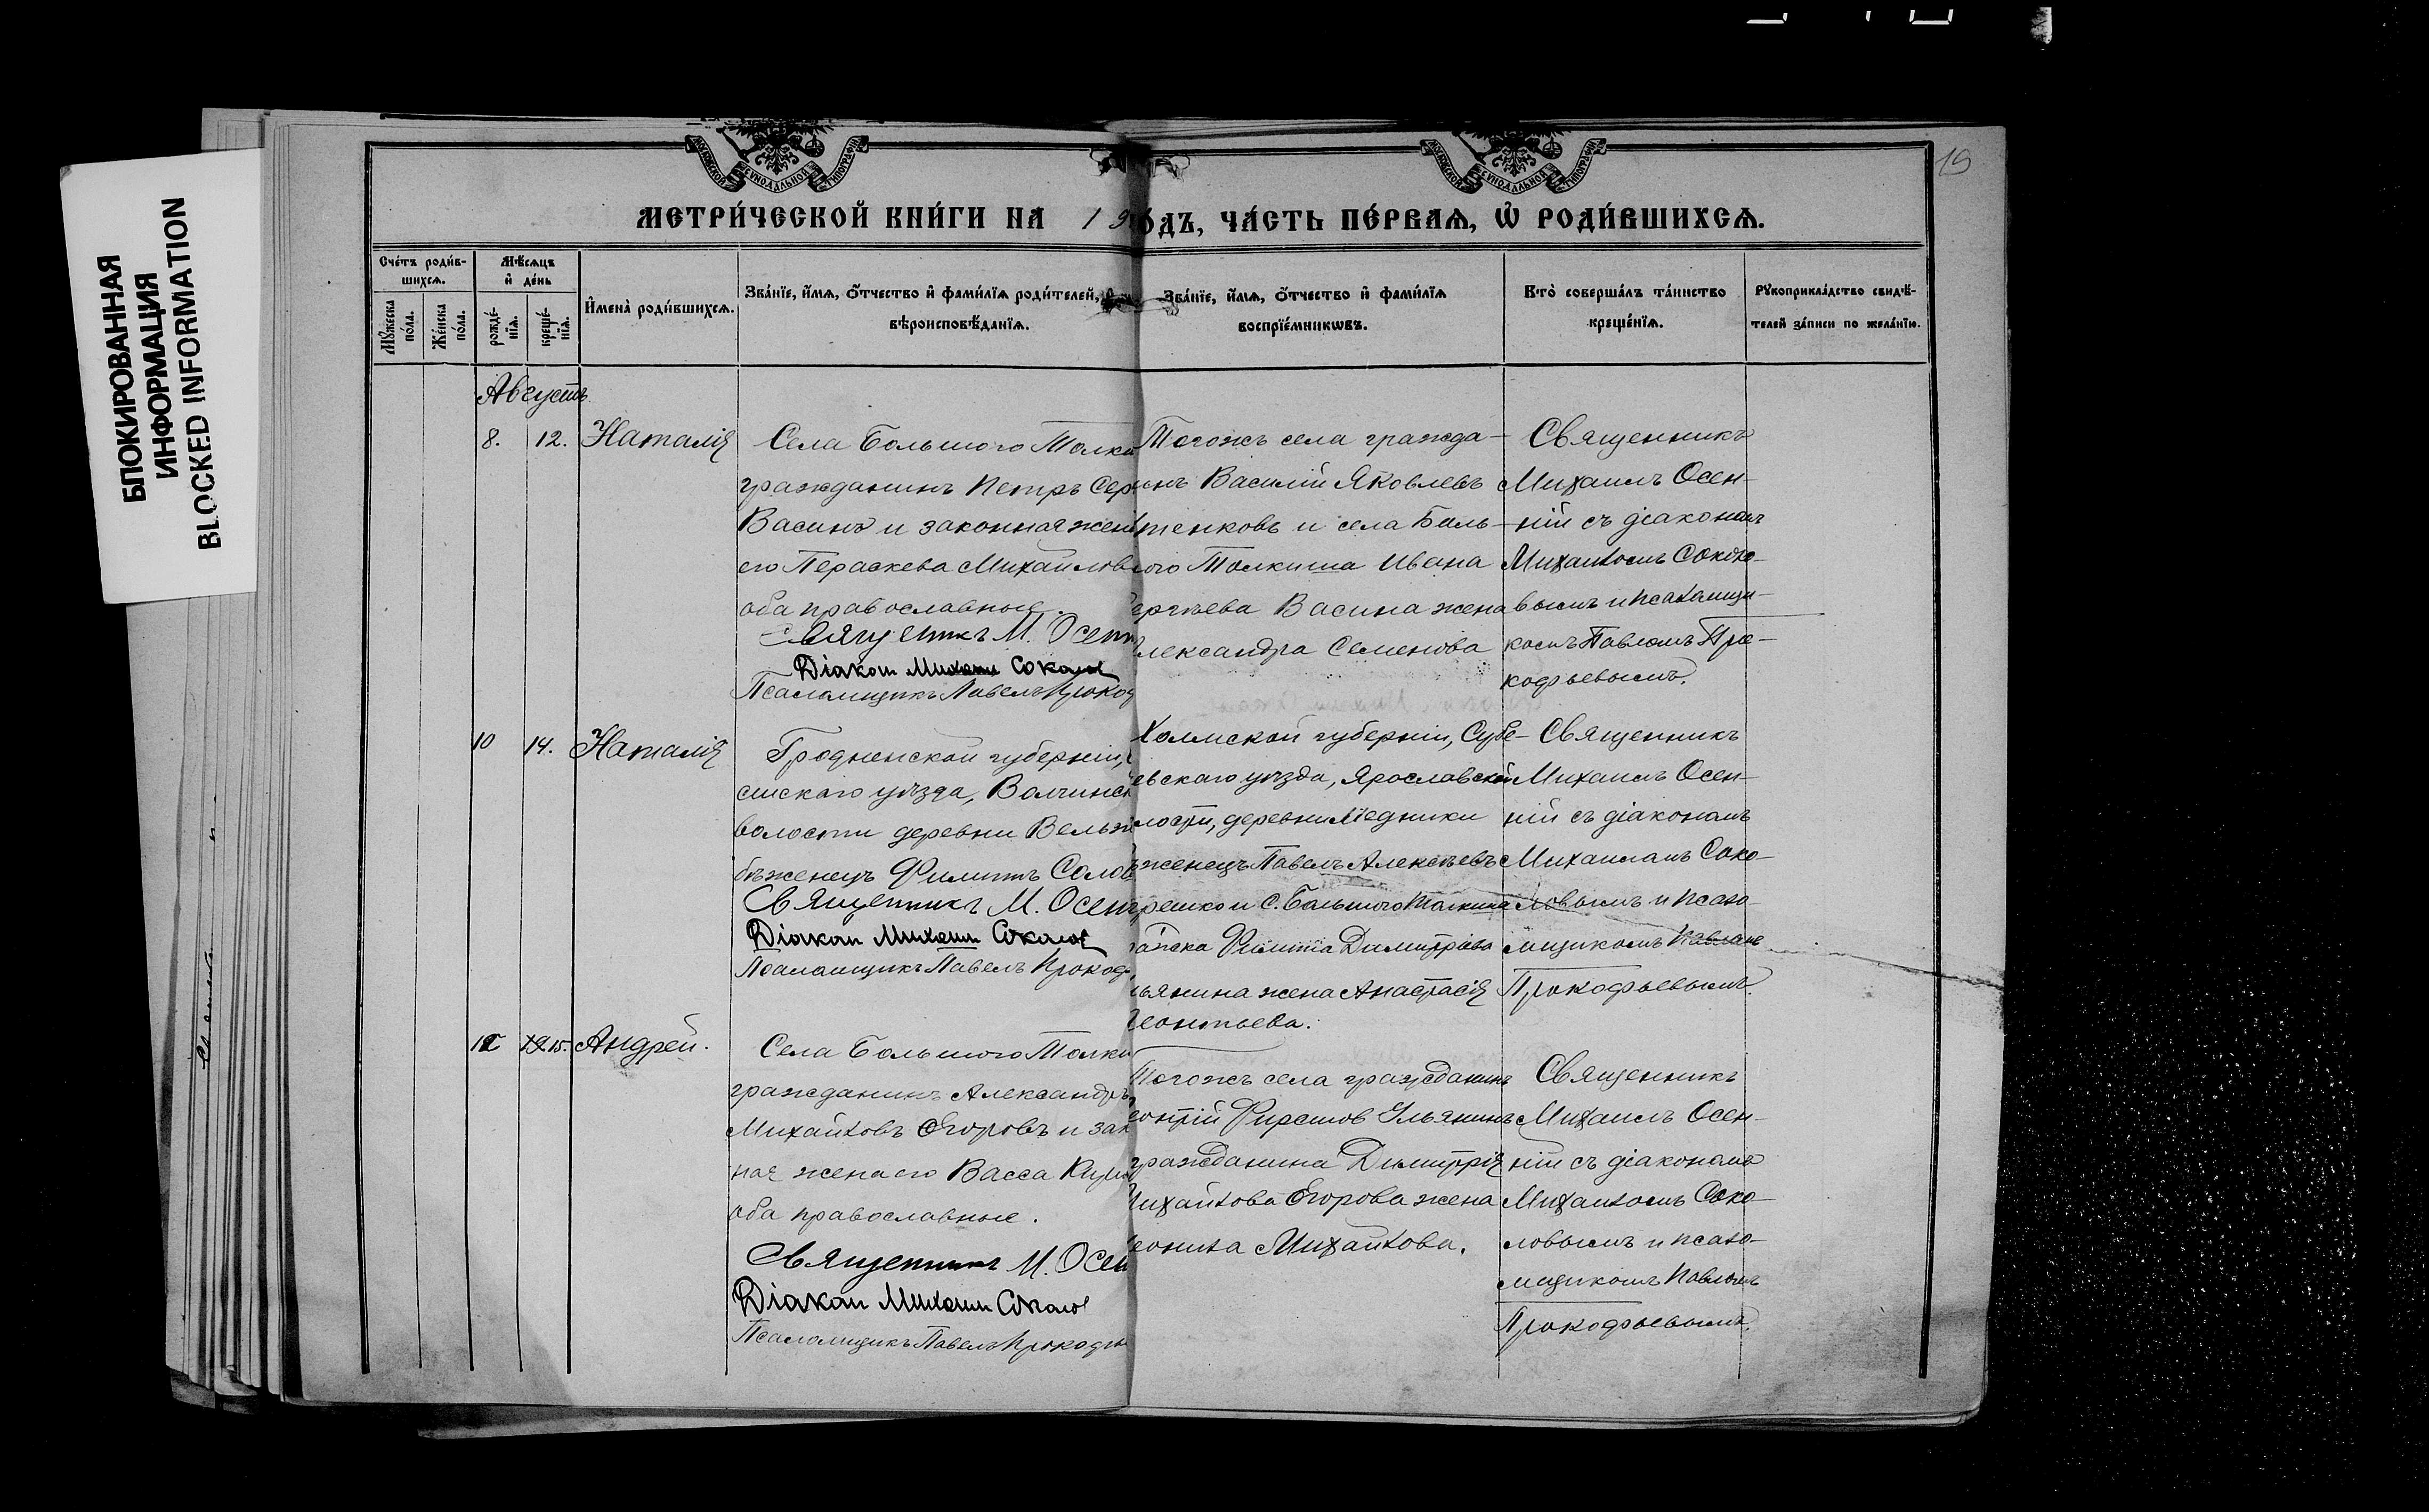 БЛОКИРОВАННАЯ
ИНФОРМАЦИЯ
BLOCKED INFORMATION
19
МОСКОВСКОЙ СѴНОДАЛЬНОЙ ТИПОГРАФІИ
МОСКОВСКОЙ СѴНОДАЛЬНОЙ ТИПОГРАФІИ
МЕТРИ́ЧЕСКОЙ КНИ́ГИ НА 19
ОДЪ, ЧА́СТЬ ПЕ́РВАѦ, Ѡ҆ РОДИ́ВШИХСѦ.
Сче́тъ роди́в-
шихсѧ.
Мꙋ́жеска
по́ла.
Же́нска
по́ла.
Мѣ́сѧцъ
и҆ де́нь
рожде́-
нїѧ.
креще́-
нїѧ.
И҆мена̀ роди́вшихсѧ.
Зва́нїе, и҆́мѧ, ѻ҆́тчество и҆ фами́лїѧ роди́телей,
вѣроисповѣ́данїѧ.
Зва́нїе, и҆́мѧ, ѻ҆́тчество и҆ фами́лїѧ
воспрїе́мникѡвъ.
Кто̀ соверша́лъ та́инство
креще́нїѧ.
Рꙋкоприкла́дство свидѣ́-
телей за́писи по жела́нїю.
Августъ.
8. 12. Наталія
Села Большого Толки
гражданинъ Петръ Сер
Васинъ и законная жен
его Пераскева Михайлов
оба православные.
Священникъ М. Осен
Діакон Михаил Соколов
Псаломщикъ Павелъ Прокоф
Тогожъ села гражда-
инъ Василій Яковлевъ
тенковъ и села Боль-
ого Толкиша Ивана
ергѣева Васина жена
лександра Семенова
Священникъ
Михаилъ Осен-
ній съ діакономъ
Михаиломъ Соколо-
вымъ и псаломщи-
комъ Павломъ Про-
кофьевымъ.
10 14. Наталія
Гродненской губерніи,
скаго уѣзда, Волчинск
волости деревни
бѣженецъ Филиппъ Солов
Священникъ М. Осен
Діакон Михаил Соколов
Псаломщикъ Павелъ Прокоф
Холмской губерніи,
евскаго уѣзда, Ярославской
лости, деревни Медники
женецъ Павелъ Алексѣевъ
решко и С. Большого Толкиша
Филиппа Димитріева
ьянина жена Анастасія
еонтьева.
Священникъ
Михаилъ Осен-
ній съ діакономъ
Михаиломъ Соко-
ловымъ и псало-
мщикомъ Павломъ
Прокофьевымъ.
15. Андрей.
Села Большого Толки
гражданинъ Александръ
Михайловъ Егоровъ и зак
ная жена его Васса Кири
оба православные.
Священникъ М. Осен
Діакон Михаил Соколов
Псаломщикъ Павелъ Прокофь
Тогожъ села гражданинъ
еонтій Фирсовъ Ульянинъ
гражданина Димитрія
ихайлова Егорова жена
еонила Михайлова.
Священникъ
Михаилъ Осен-
ній съ діакономъ
Михаиломъ Соко-
ловымъ и псало-
мщикомъ Павломъ
Прокофьевымъ.